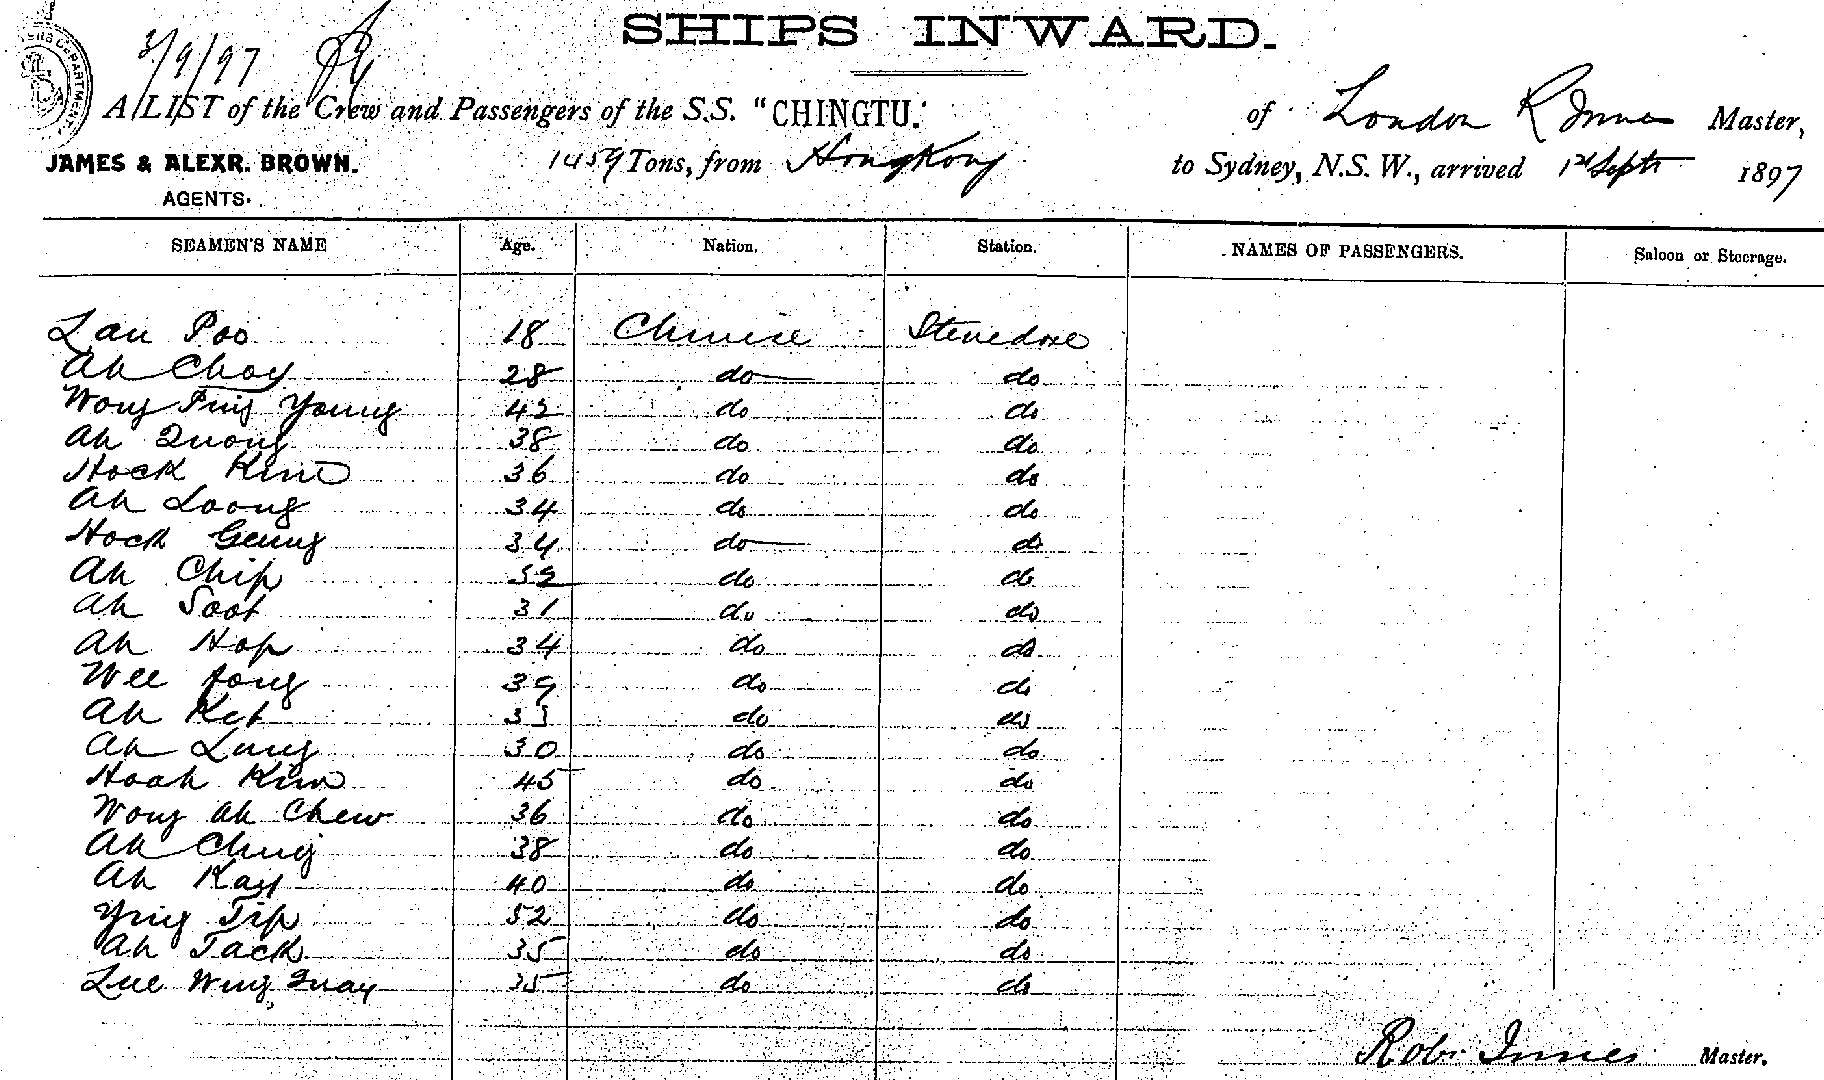 SHIPS INWARD.
3/9/97
A LIST of the Crew and Passengers of the S.S. "CHINGTU." of London R Innes Master,
JAMES & ALEXR. BROWN. 1459 Tons, from HongKong to Sydney, N.S.W., arrived 1st Septr 1897
AGENTS.
SEAMEN'S NAME Age. Nation. Station. NAMES OF PASSENGERS. Saloon or Steerage.
Lau Poo 18 Chinese Stevedore
Ah Choy 28 do do
Wong Ping Young 42 do do
Ah Quong 38 do do
Hock Kim 36 do do
Ah Loong 34 do do
Hock Geung 34 do do
Ah Chip do do
Ah Soot 31 do do
Ah Hop 34 do do
Wee Fong 39 do do
Ah Ket 33 do do
Ah Lung 30 do do
Hoah Kim 45 do do
Wong Ah Chew 36 do do
Ah Ching 38 do do
Ah Kay 40 do do
Ying Tip 52 do do
Ah Tack 35 do do
Lue Wing Quay 35 do do
Robt Innes Master.